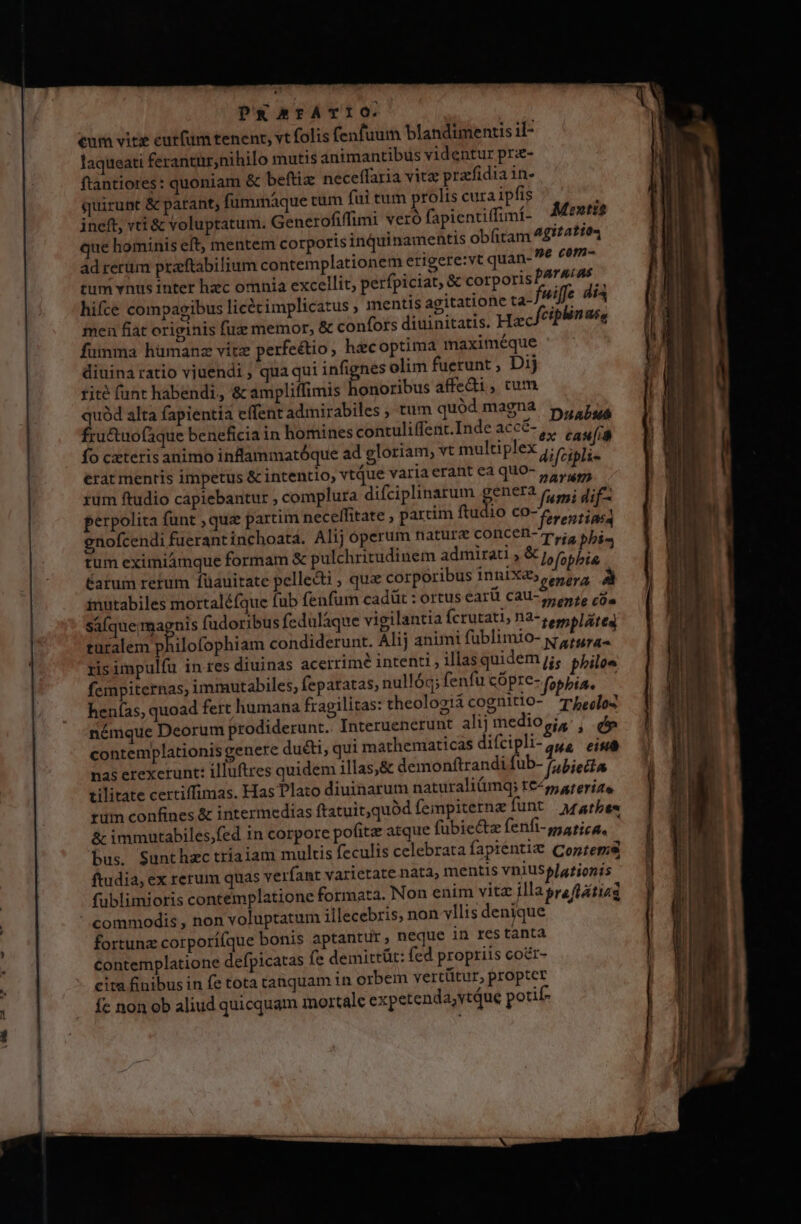 PRÆFATIO.
cum vitæ curſum tenent, vt ſolis ſenſuum blandimentis il-
laqueati ferantur, nihilo mutis animantibus videntur præ-
ſtantiores: quoniam & beſtiæ neceſſaria vitæ præſidia in-
quirunt & parant, ſummáque tum ſui tum prolis cura ipſis
ineſt, vti & voluptatum. Generoſiſſimi verò ſapientiſſimí-
que hominis eſt, mentem corporis inquinamentis obſitam
ad rerum præſtabilium contemplationem erigere: vt quan-
tum vnus inter hæc omnia excellit, perſpiciat, & corporis
hiſce compagibus licèt implicatus, mentis agitatione ta-
men fiat originis ſuæ memor, & conſors diuinitatis. Hæc
ſumma humanæ vitæ perfectio, hæc optima maximéque
diuina ratio viuendi, qua qui inſignes olim fuerunt, Dij
ritè ſunt habendi, & ampliſſimis honoribus affecti, cum
quòd alta ſapientia eſſent admirabiles, tum quòd magna
fructuoſaque beneficia in homines contuliſſent. Inde accé-
ſo cæteris animo inflammatóque ad gloriam, vt multiplex
erat mentis impetus & intentio, vtque varia erant ea quo-
rum ſtudio capiebantur, complura diſciplinarum genera
perpolita ſunt, quæ partim neceſſitate, partim ſtudio co-
gnoſcendi fuerant inchoata. Alij operum naturæ concen-
tum eximiámque formam & pulchritudinem admirati, &
earum rerum ſuauitate pellecti, quæ corporibus innixæ,
mutabiles mortaléſque ſub ſenſum cadūt: ortus earū cau-
sáſque magnis ſudoribus ſeduláque vigilantia ſcrutati, na-
turalem philoſophiam condiderunt. Alij animi ſublimio-
ris impulſu in res diuinas acerrimè intenti, illas quidem
ſempiternas, immutabiles, ſeparatas, nullóq; ſenſu cōpre-
henſas, quoad fert humana fragilitas: theologiā cognitio-
némque Deorum prodiderunt. Interuenerunt alij medio
contemplationis genere ducti, qui mathematicas diſcipli-
nas erexerunt: illuſtres quidem illas, & demonſtrandi ſub-
tilitate certiſſimas. Has Plato diuinarum naturaliūmq; re-
rum confines & intermedias ſtatuit, quòd ſempiternæ ſunt
& immutabiles, ſed in corpore poſitæ atque ſubiectæ ſenſi-
bus. Sunt hæc tria iam multis ſeculis celebrata ſapientiæ
ſtudia, ex rerum quas verſant varietate nata, mentis vnius
ſublimioris contemplatione formata. Non enim vitæ illa
commodis, non voluptatum illecebris, non vllis denique
fortunæ corporíſque bonis aptantur, neque in res tanta
contemplatione deſpicatas ſe demittūt: ſed propriis coër-
cita finibus in ſe tota tanquam in orbem vertūtur, propter
ſe non ob aliud quicquam mortale expetenda, vtque potiſ-
Mentis
agitatio-
ne com-
paratas
fuiſſe di-
ſciplinas.
Duabus
ex cauſis
diſcipli-
narum
ſumi dif-
ferentias.
Tria phi-
loſophiæ
genera à
mente cō-
templātes
Natura-
lis philo-
ſophia.
Theolo-
gia, &
quæ eius
ſubiecta
materia.
Mathe-
matica.
Contem-
plationis
præſtātia